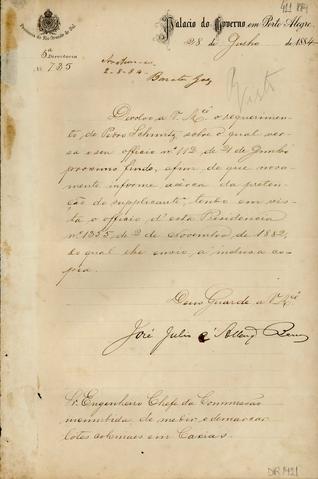 411 884
Palacio do Governo em Porto Alegre,
Provincia do Rio Grande do Sul.
28 de Julho de 1884
5ª Directoria
Nº 725
2-8-84
Visto
Devolvo a V. Mcê o requerimen-
to, de Pedro Schmitz, sobre o qual ver-
sa o seu officio nº 112 de 21 de Junho
proximo findo, afim de que nova-
mente informe acerca da preten-
ção do supplicante, tendo em vis-
ta o officio d'esta Presidencia
nº 1335, de 2 de Novembro, de 1882,
do qual lhe envio, a inclusa co-
pia.
Deus Guarde a V. Mcê
José Julio d'Albuq Barros
Sr. Engenheiro Chefe da Commissão
incumbida, de medir e demarcar
lotes coloniaes em Caxias.